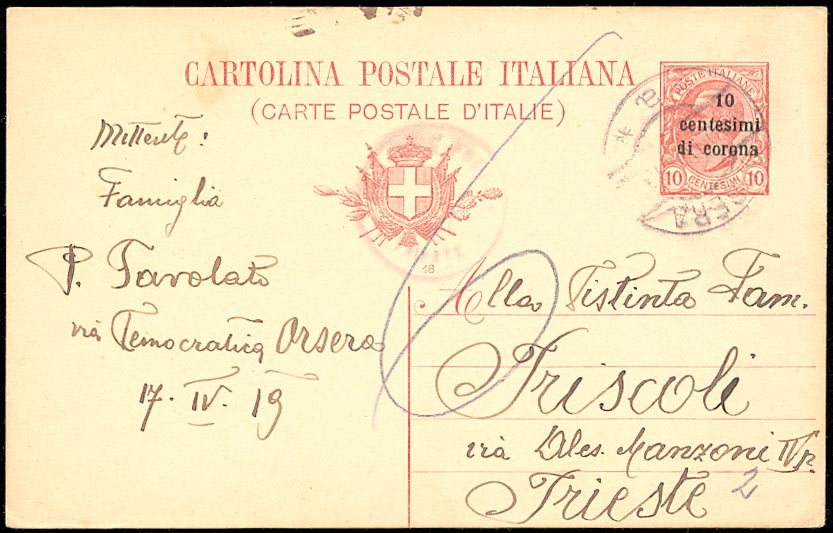 CARTOLINA POSTALE ITALIANA
(CARTE POSTALE D'ITALIE)
POSTE ITALIANE
10
centesimi
di corona
10 CENTESIMI 10
Mittente:
Famiglia
P. Tavolato
via Democratica Orsera
17. IV. 19
18
Alla Distinta Fam.
Triscoli
via Ales. Manzoni
Trieste 2